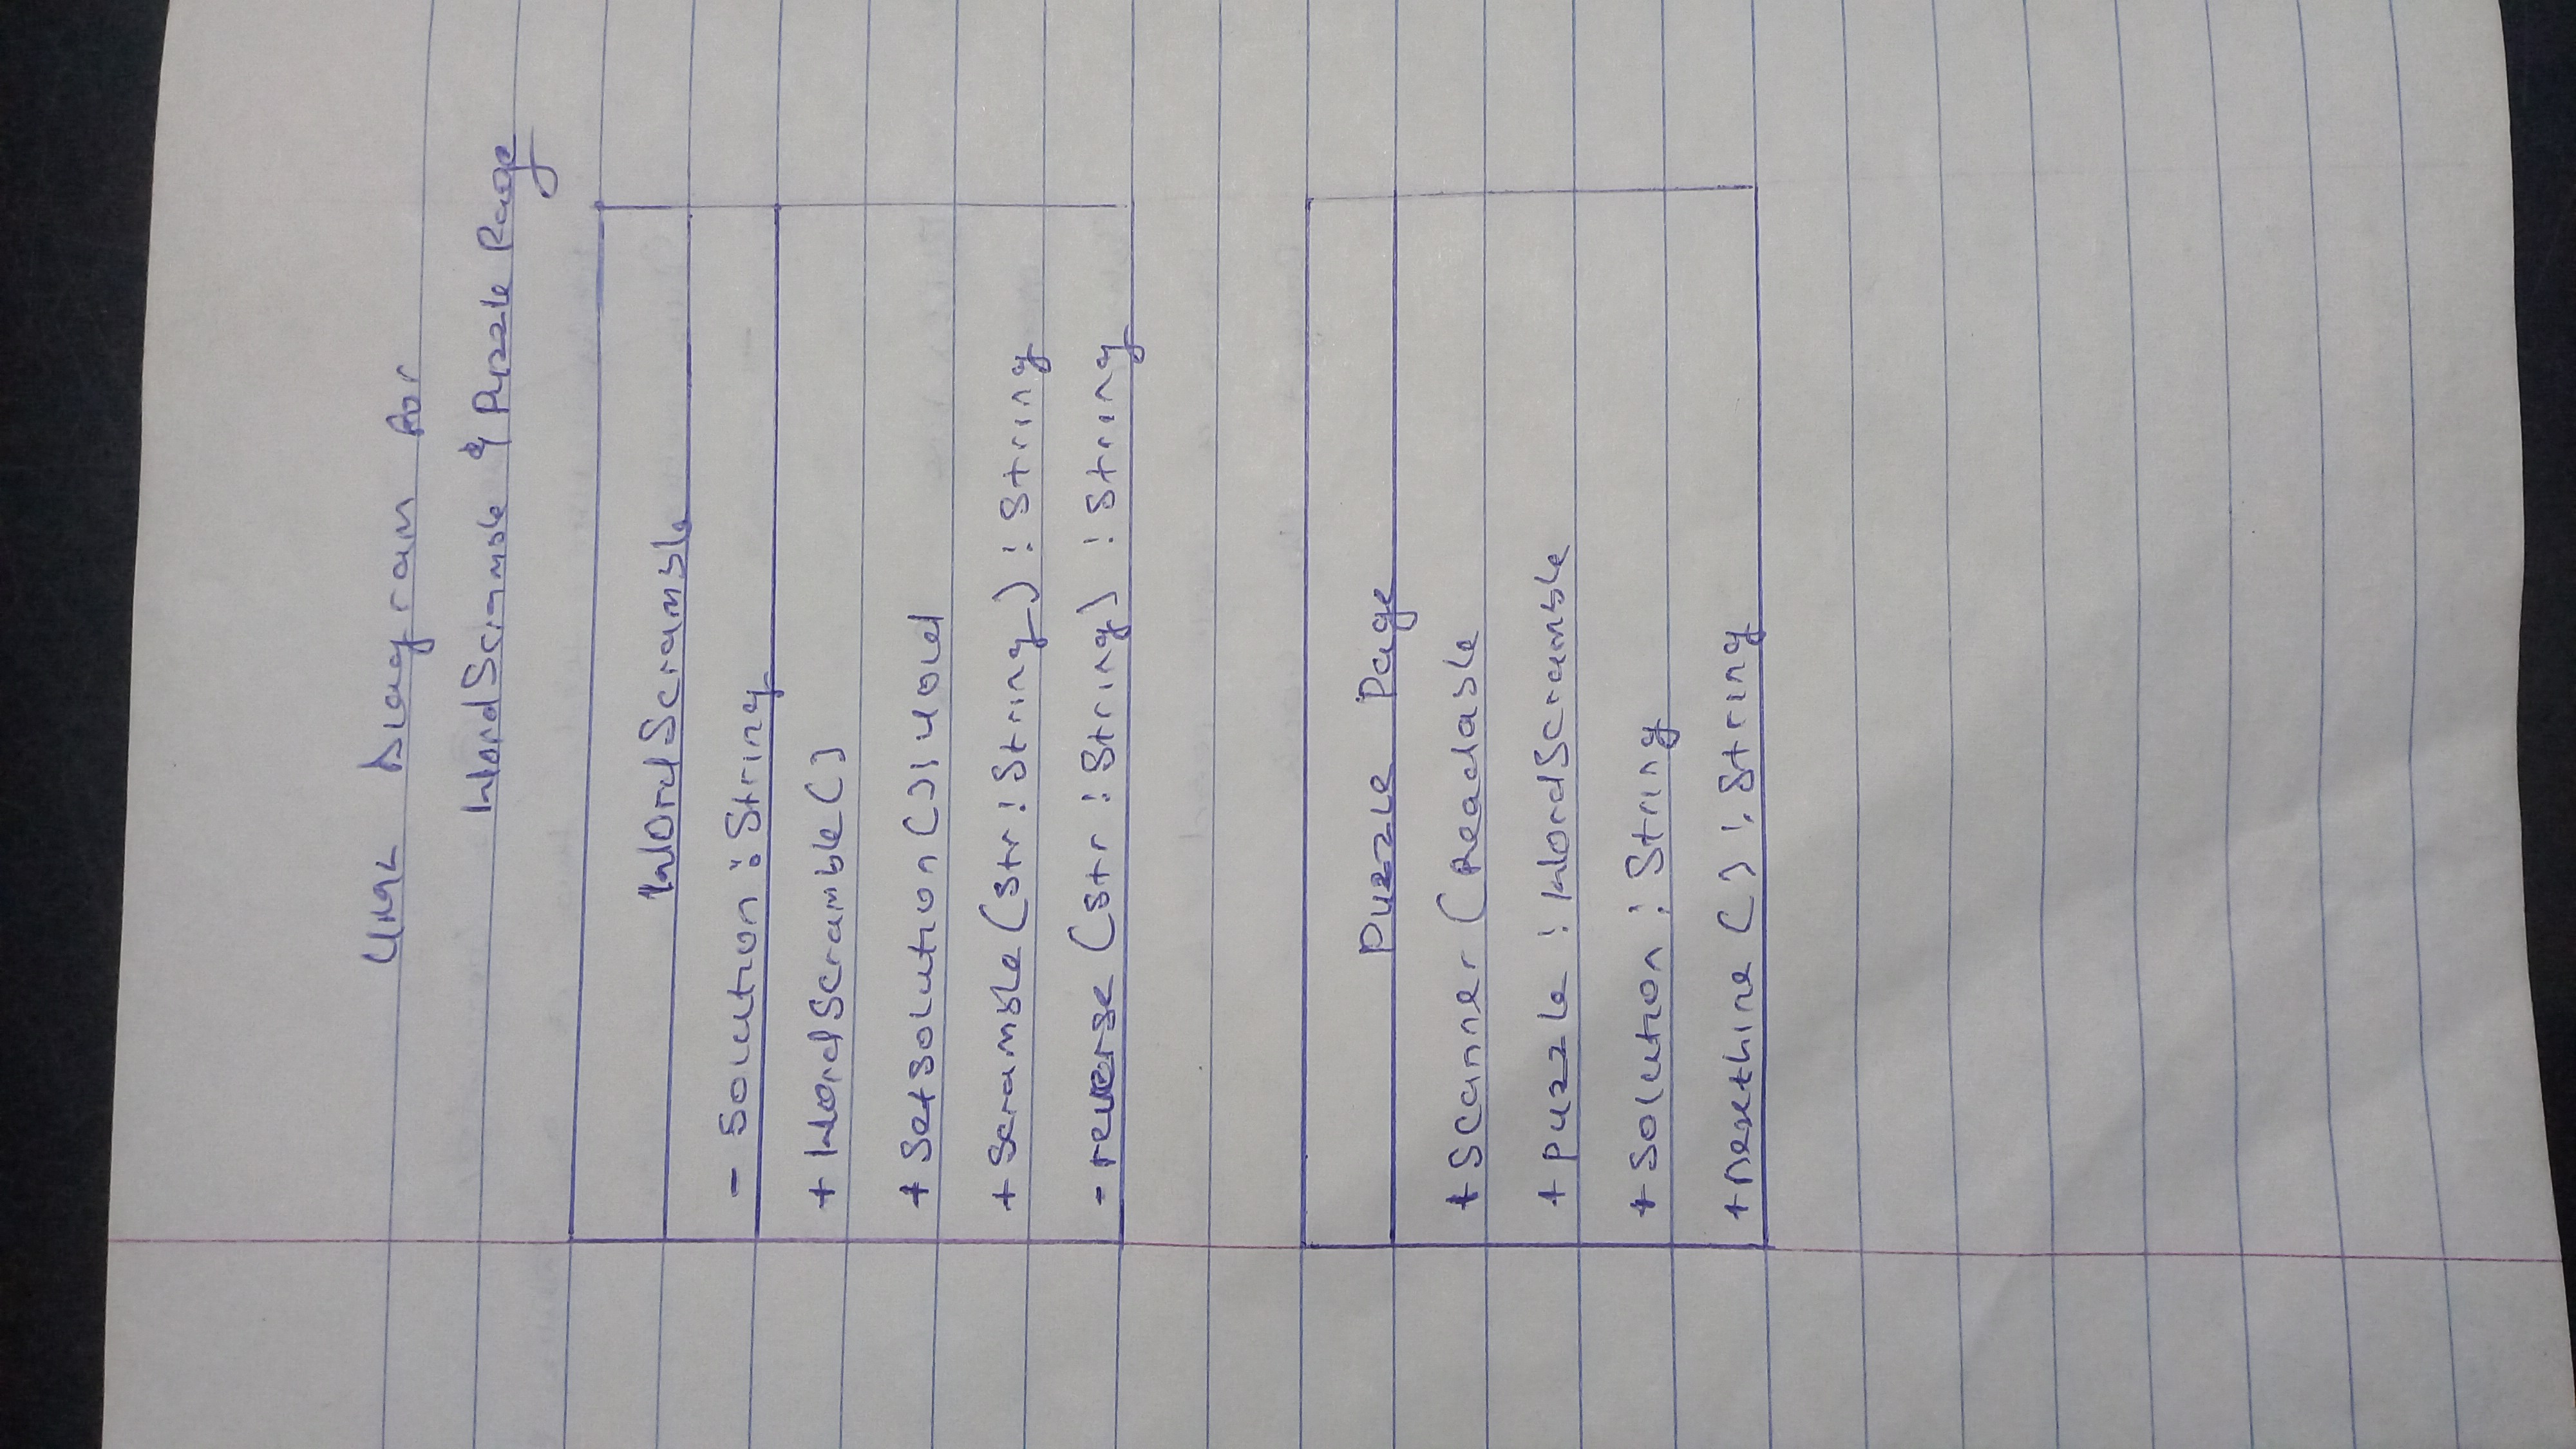 UML Diagram for
WordScramble & Puzzle Page
WordScramble
- Solution : String
+ WordScramble()
+ Setsolution() : void
+ Scramble (Str : String) : String
- reverse (Str : String) : String
Puzzle Page
+ Scanner (Readable
+ puzzle : WordScramble
+ Solution : String
() : String